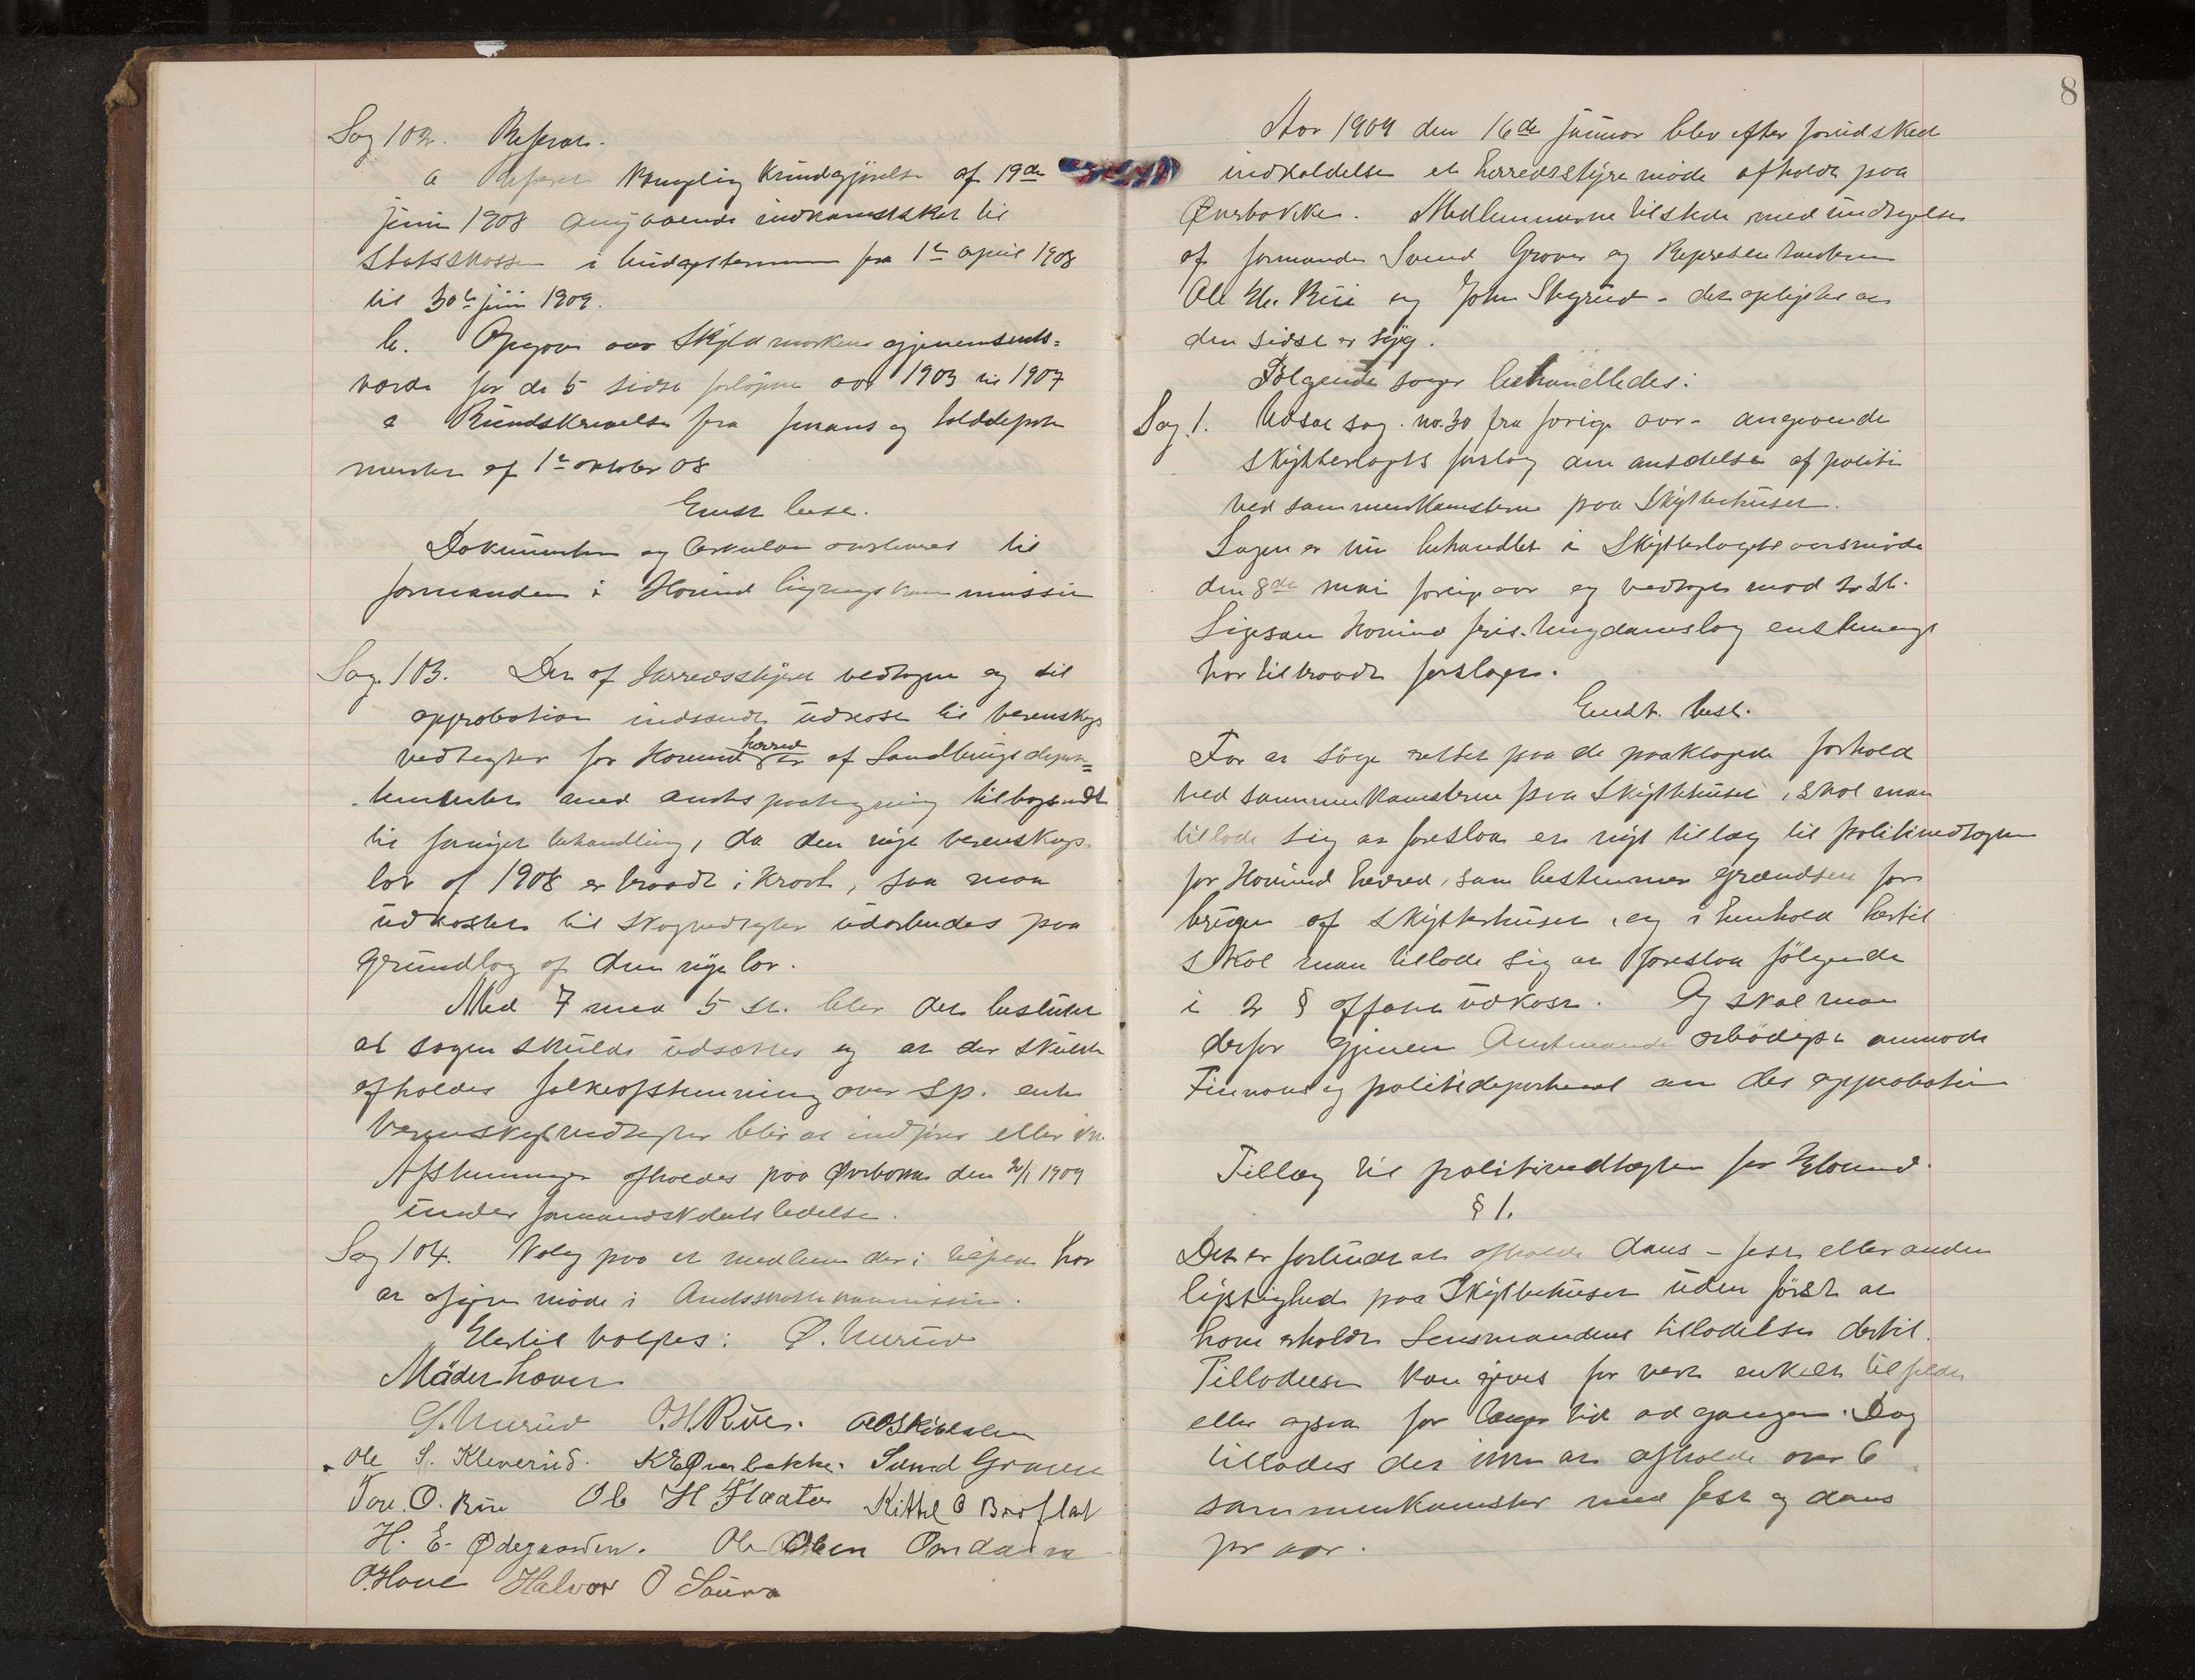 Sag 102. Referat.
a Referert Kongelig Kundgjörelse af 19de
juni 1908 angaaende indkomstskat til
Statskassen i budgetterminen fra 1ste april 1908
til 30te juni 1909.
b. Opgave over Skyldmarkens gjennemsnits=
værdi for de 5 sidst forløpne aar 1903 til 1907
c Rundskrivelse fra finans og tolddeparte
mentet af 1ste oktober 08
Enst. besl.
Dokumenter og Cirkulær oversendes til
formanden i Hovind ligningskommission
Sag. 103. Den af Herredsstyret vedtagne og til
approbation indsendte udkast til verenskogs
vedtægter for Hovind herred er af Landbrugsdepar=
tementet med amtspaategning tilbagesendt
til fornyet behandling, da den nye verenskogs
lov af 1908 er traadt i kraft, saa maa
udkastet til skogvedtægter udarbeides paa
grundlag af den nye lov.
Med 7 mod 5 st. blev det besluttet
at sagen skulde udsættes og at der skulde
afholdes folkeafstemning over sp. enten
Verenskogvedtægter blir at indføre eller ei.
Afstemningen afholdes paa Øvrbakken den 1909
under formandskabets ledelse.
Sag 104. Valg paa et medlem der i tilfælde har
at afgive møde i Amtsskattekommission.
Hertil valgtes: O. Murud
Mödet hævet
O. Murud O.H. Rue.
Ole S. Kleverud. K E Øverbakke. Svend Graver
Tov. O. Rue Ole H Flaata Kittil O Broflat
H. E. Ødegaarden. Ole Olsen Omdal
O. Hove Halvor O
8
Aar 1909 den 16de januar blev efter forudsked
indkaldelse et herredsstyremöde afholdt paa
Øverbakken. Medlemmerne tilstede med undtagelse
af formanden Svend Graver og Repræsentanterne
Ole H. Rue og John Skogrud - det oplystes at
den sidste er syg.
Fölgende sager behandledes:
Sag. 1. Udsat sag. no. 30 fra forrige aar - angaaende
skytterlagets forslag om ansættelse af politi
ved sammenkomsterne paa Skytterhuset.
Sagen er nu behandlet i Skytterlagets aarsmöde
den 8de mai forrige aar og vedtaget mod 2 st.
Ligesom Hovind fris. ungdomslag enstemmigt
har tiltraadt forslaget.
Enst. besl.
For at söge rettet paa de paaklagede forhold
ved sammenkomsterne paa Skytterhuset, skal man
tillade sig at foreslaa et nyt tillæg til politivedtægten
for Hovind herred, som bestemmer grændsen for
brugen af skytterhuset, og i henhold hertil
skal man tillade sig at foreslaa fölgende
i 2 § affatte udkast. Og skal man
derfor gjennem Amtmanden ærbödigst anmode
Finans og politidepartemt om det approbation
Tillæg til politivedtægten for Hovind.
§ 1.
Det er forbudt at afholde dans - fest eller anden
lystighed paa Skytterhuset uden først at
have erholdt Lensmandens tilladelse dertil.
Tilladelsen kan gives for vært enkelt tilfælde
eller ogsaa for længer tid ad gangen. Dog
tillades det ikke at afholde over 6
sammenkomster med fest og dans
pr aar.